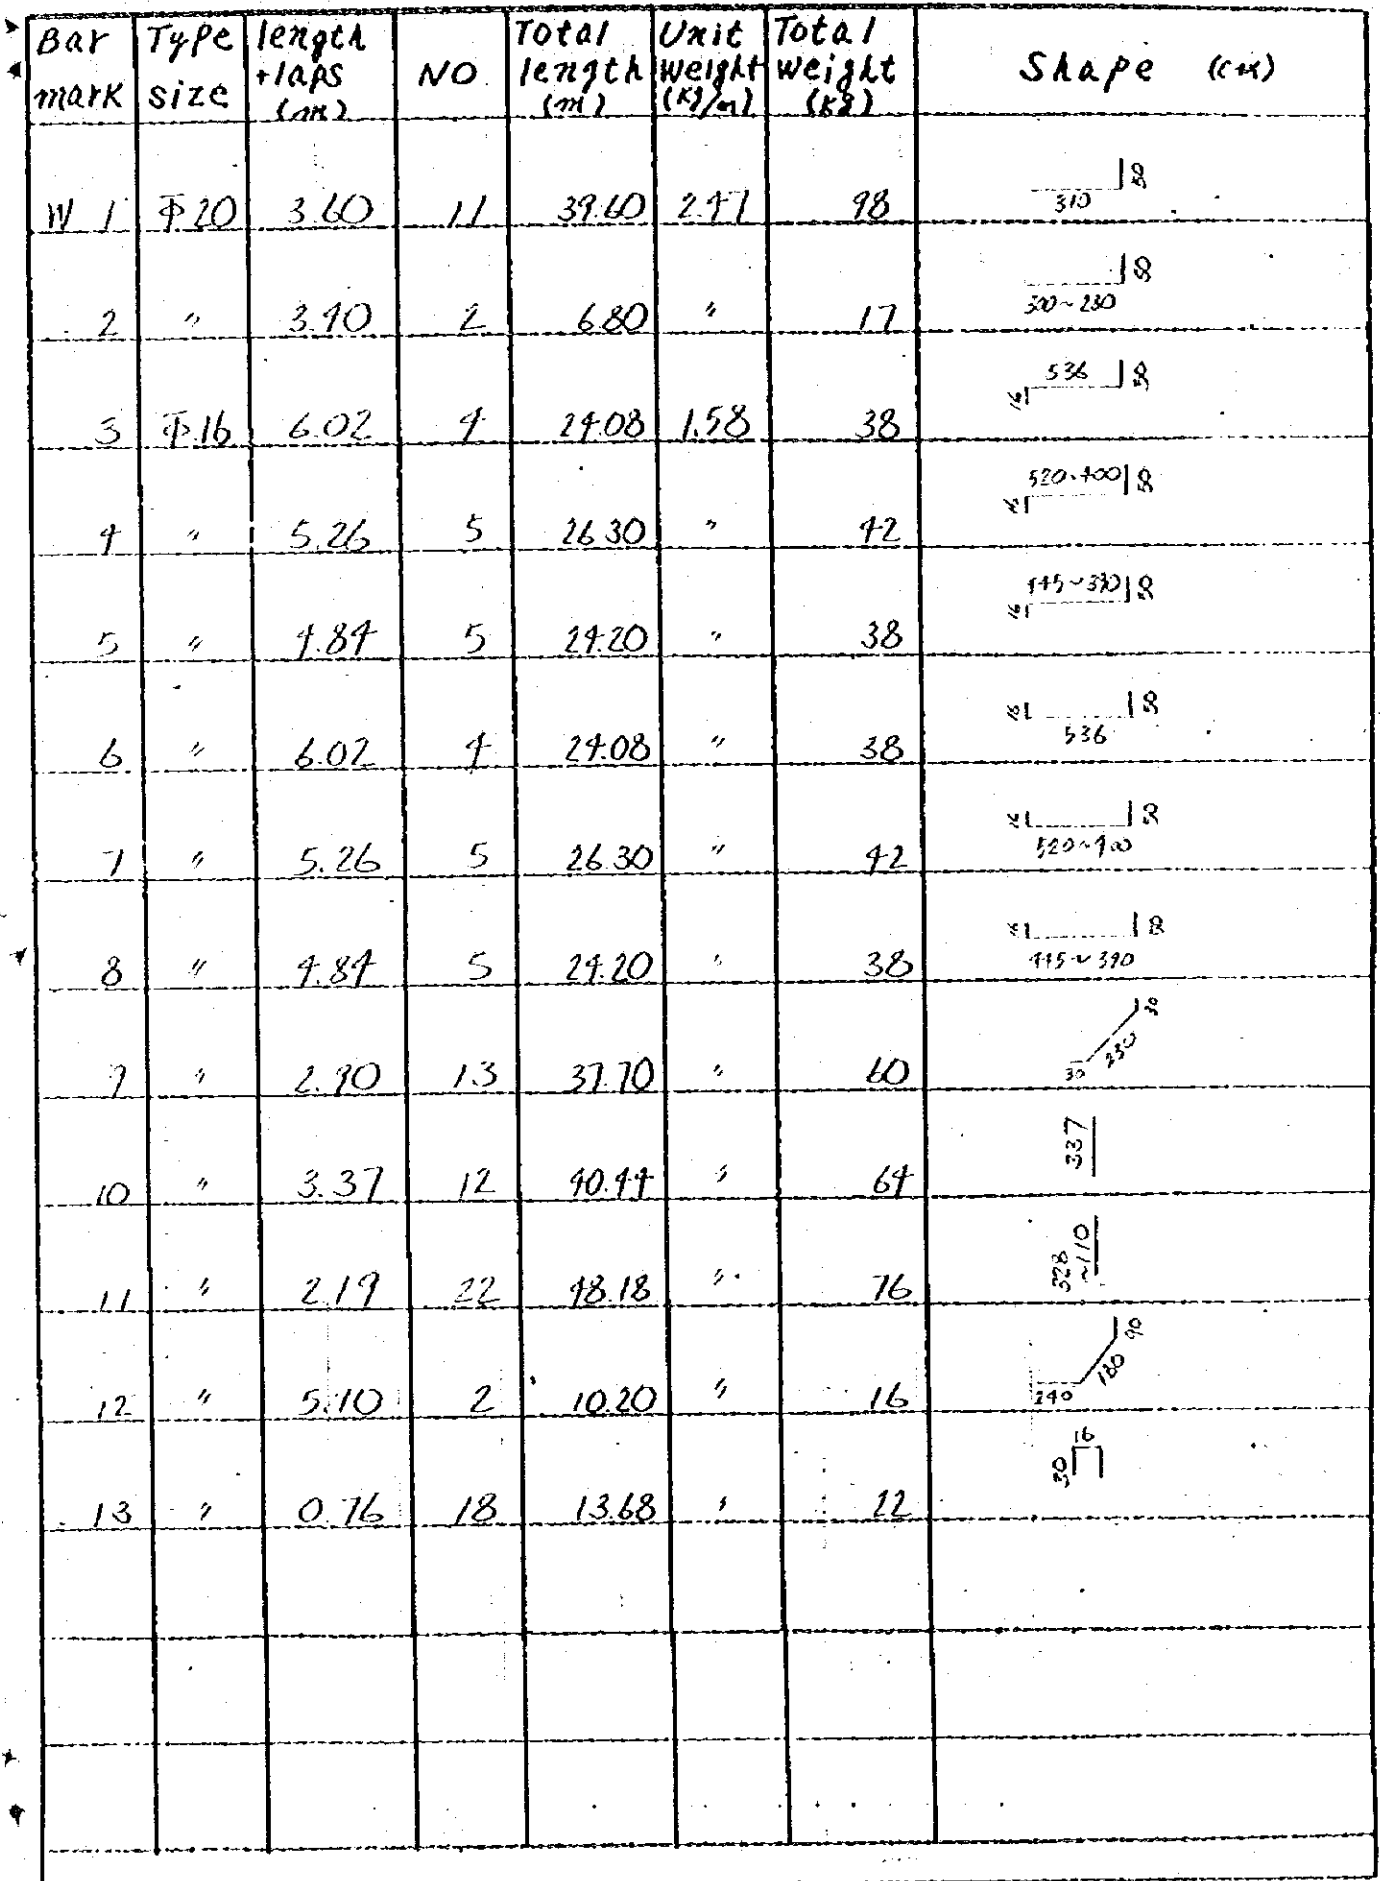 Bar mark | Type size | length +laps (m) | NO | Total length (m) | Unit weight (kg/m) | Total weight (kg) | Shape (cm)
W 1 | Φ20 | 3.60 | 11 | 39.60 | 2.47 | 98 | 310 50
2 | 〃 | 3.40 | 2 | 6.80 | 〃 | 17 | 300~280 50
3 | Φ16 | 6.02 | 4 | 24.08 | 1.58 | 38 | 16 536 50
4 | 〃 | 5.26 | 5 | 26.30 | 〃 | 42 | 16 520~400 50
5 | 〃 | 4.84 | 5 | 24.20 | 〃 | 38 | 16 445~390 50
6 | 〃 | 6.02 | 4 | 24.08 | 〃 | 38 | 16 536 50
7 | 〃 | 5.26 | 5 | 26.30 | 〃 | 42 | 16 520~400 50
8 | 〃 | 4.84 | 5 | 24.20 | 〃 | 38 | 16 445~390 50
9 | 〃 | 2.90 | 13 | 37.70 | 〃 | 60 | 30 230 30
10 | 〃 | 3.37 | 12 | 40.44 | 〃 | 64 | 337
11 | 〃 | 2.19 | 22 | 48.18 | 〃 | 76 | 328 ~110
12 | 〃 | 5.10 | 2 | 10.20 | 〃 | 16 | 240 180 90
13 | 〃 | 0.76 | 18 | 13.68 | 〃 | 22 | 30 16